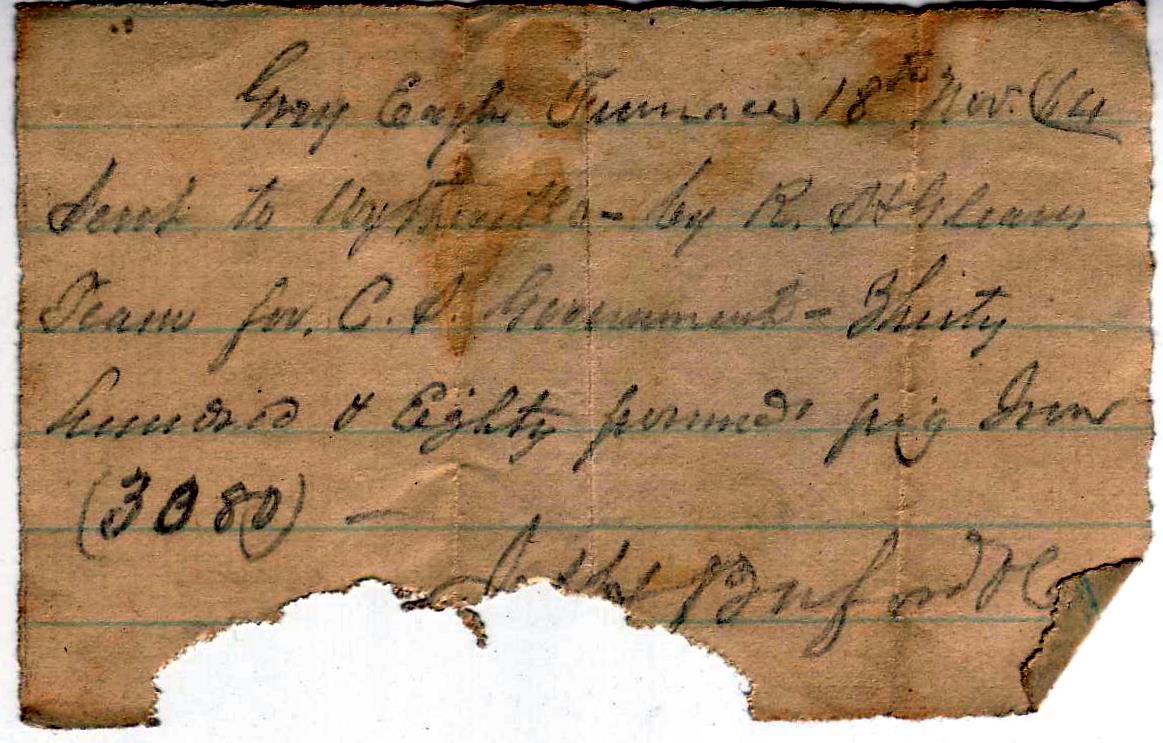 Grey Eagle Furnace 18th Nov. 64
Sent to Wytheville - by R. S H Gleaves
Team for. C. S. Government - Thirty
hundred & Eighty pounds pig Iron
(3080) —
Buford & C